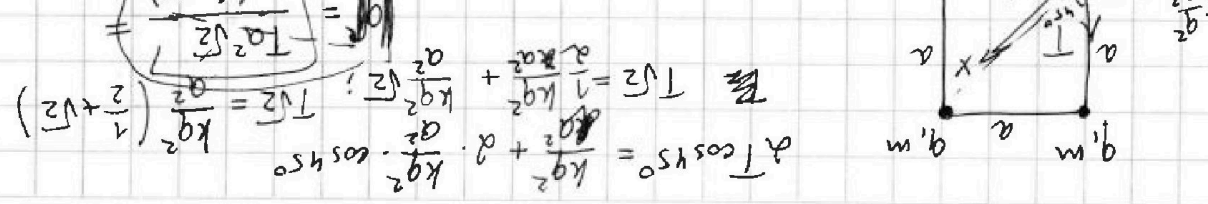 q, m q, m
a
a a
x T 45°
2T cos 45° = kq²/2a² + 2 · kq²/a² · cos 45°
T√2 = 1/2 kq²/a² + kq²/a² √2; T√2 = kq²/a² (1/2 + √2)
= Ta²√2 =